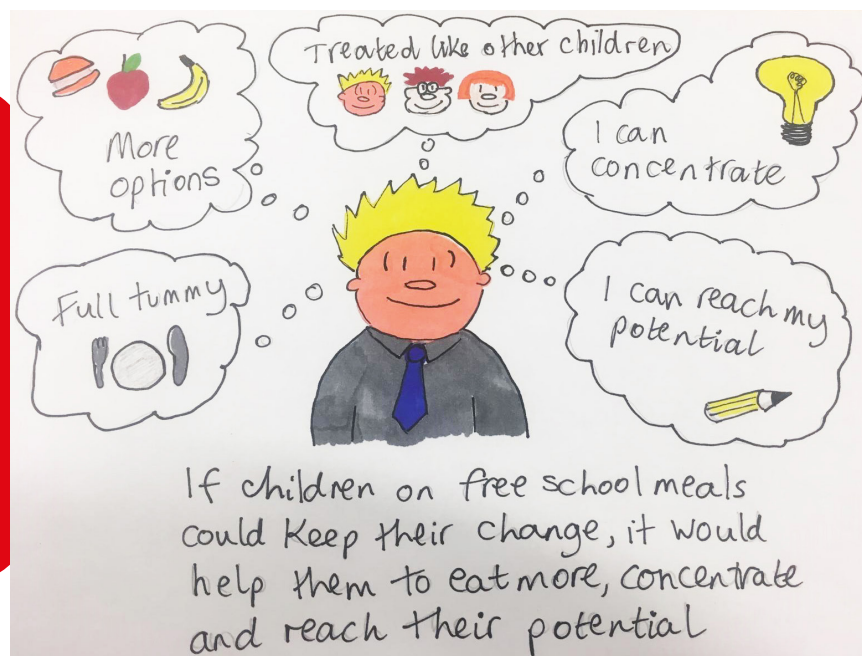 Treated like other children
More
options
I can
concentrate
Full tummy
I can reach my
potential
If children on free school meals
could keep their change, it would
help them to eat more, concentrate
and reach their potential